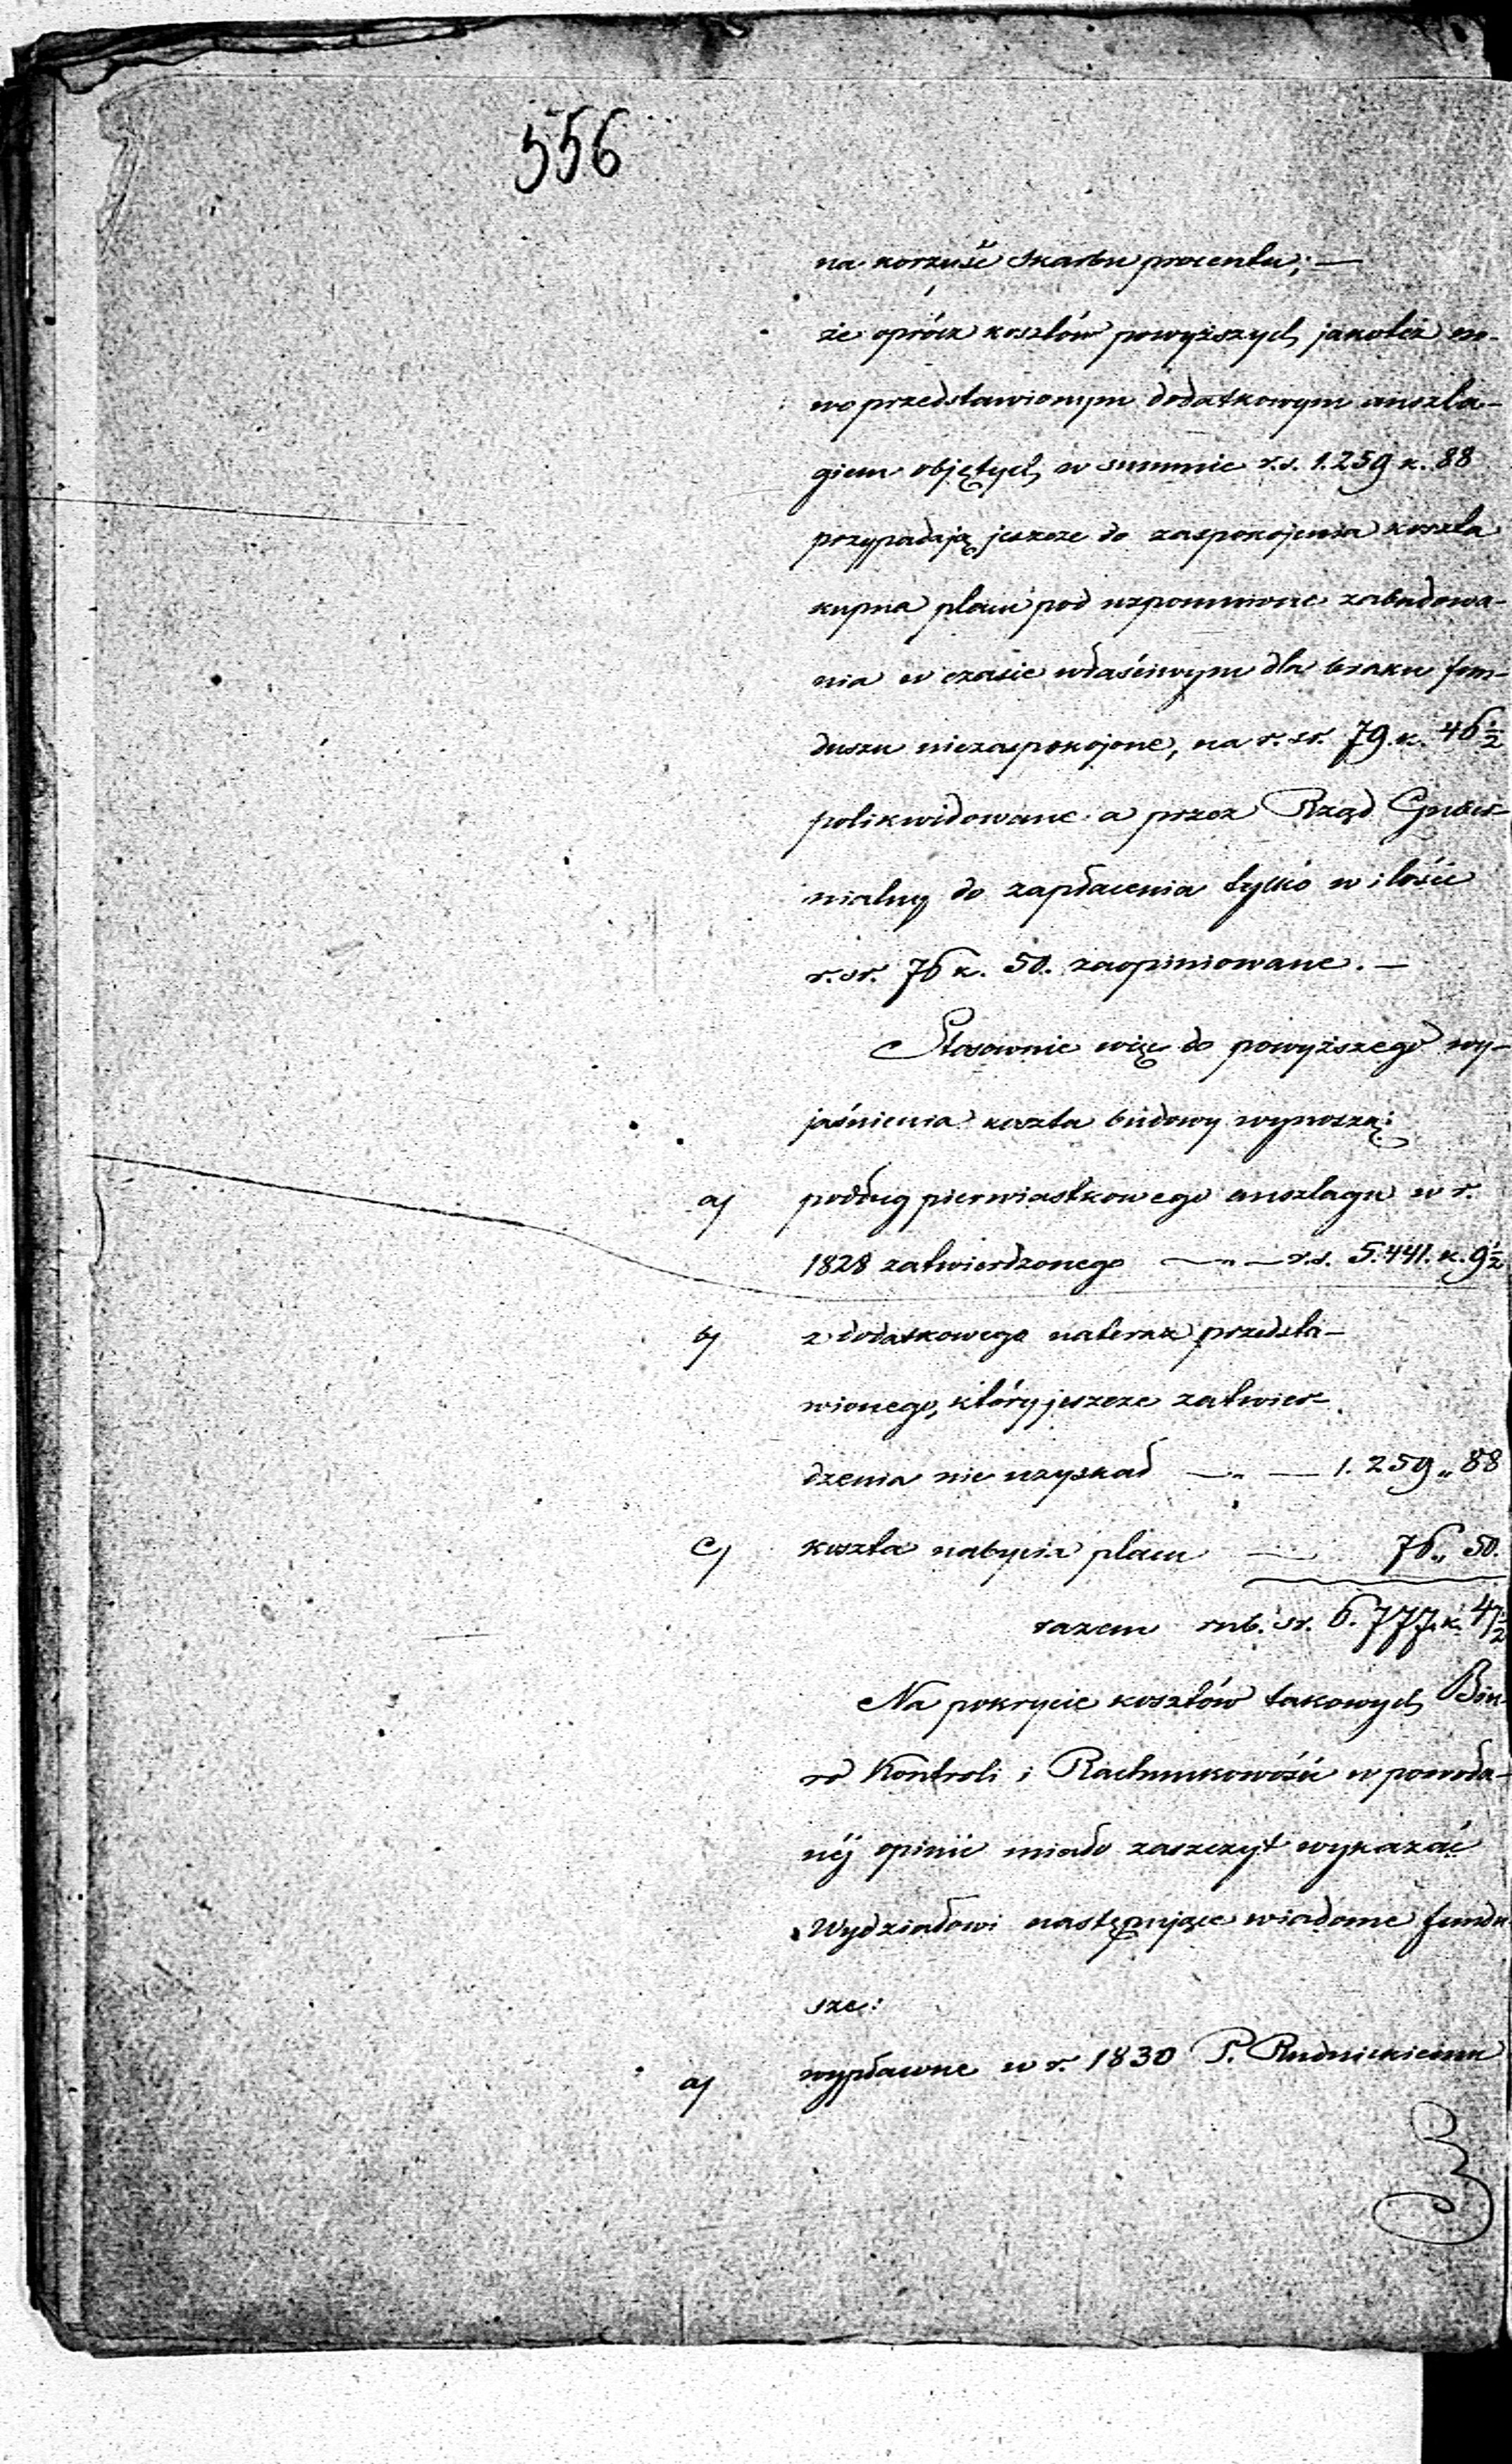 556
na korzyść skarbu procentu; —
że oprócz kosztów powyższych jakoteż no-
wo przedstawionym dodatkowym anszla-
giem objętych w summie r.s. 1.259 k. 88
przypadają jeszcze do zaspokojenia koszta
kupna placu pod wspomnione zabudowa-
nia w czasie właściwym dla braku fun-
duszu niezaspokojone, na r. sr. 79. k. 46½
polikwidowane a przez Rząd Guber-
nialny do zapłacenia tylko w ilości
r. sr. 76 k. 50. zaopiniowane. —
Stosownie więc do powyższego wy-
jaśnienia koszta budowy wynoszą:
a) podług pierwiastkowego anszlagu w r.
1828 zatwierdzonego — „ — r.s. 5.441. k. 9½
b) z dodatkowego nateraz przedsta-
wionego, który jeszcze zatwier-
dzenia nie uzyskał — „ — 1.259 „ 88
c) koszta nabycia placu — 76 „ 50.
razem rub. sr. 6.777. k. 47½
Na pokrycie kosztów takowych Biu-
ro Kontroli i Rachunkowości w powoła-
néj opinii miało zaszczyt wykazać
Wydziałowi następujące wiadome fundu
sze:
a) wypłacone w r. 1830 P. Rudnickiemu